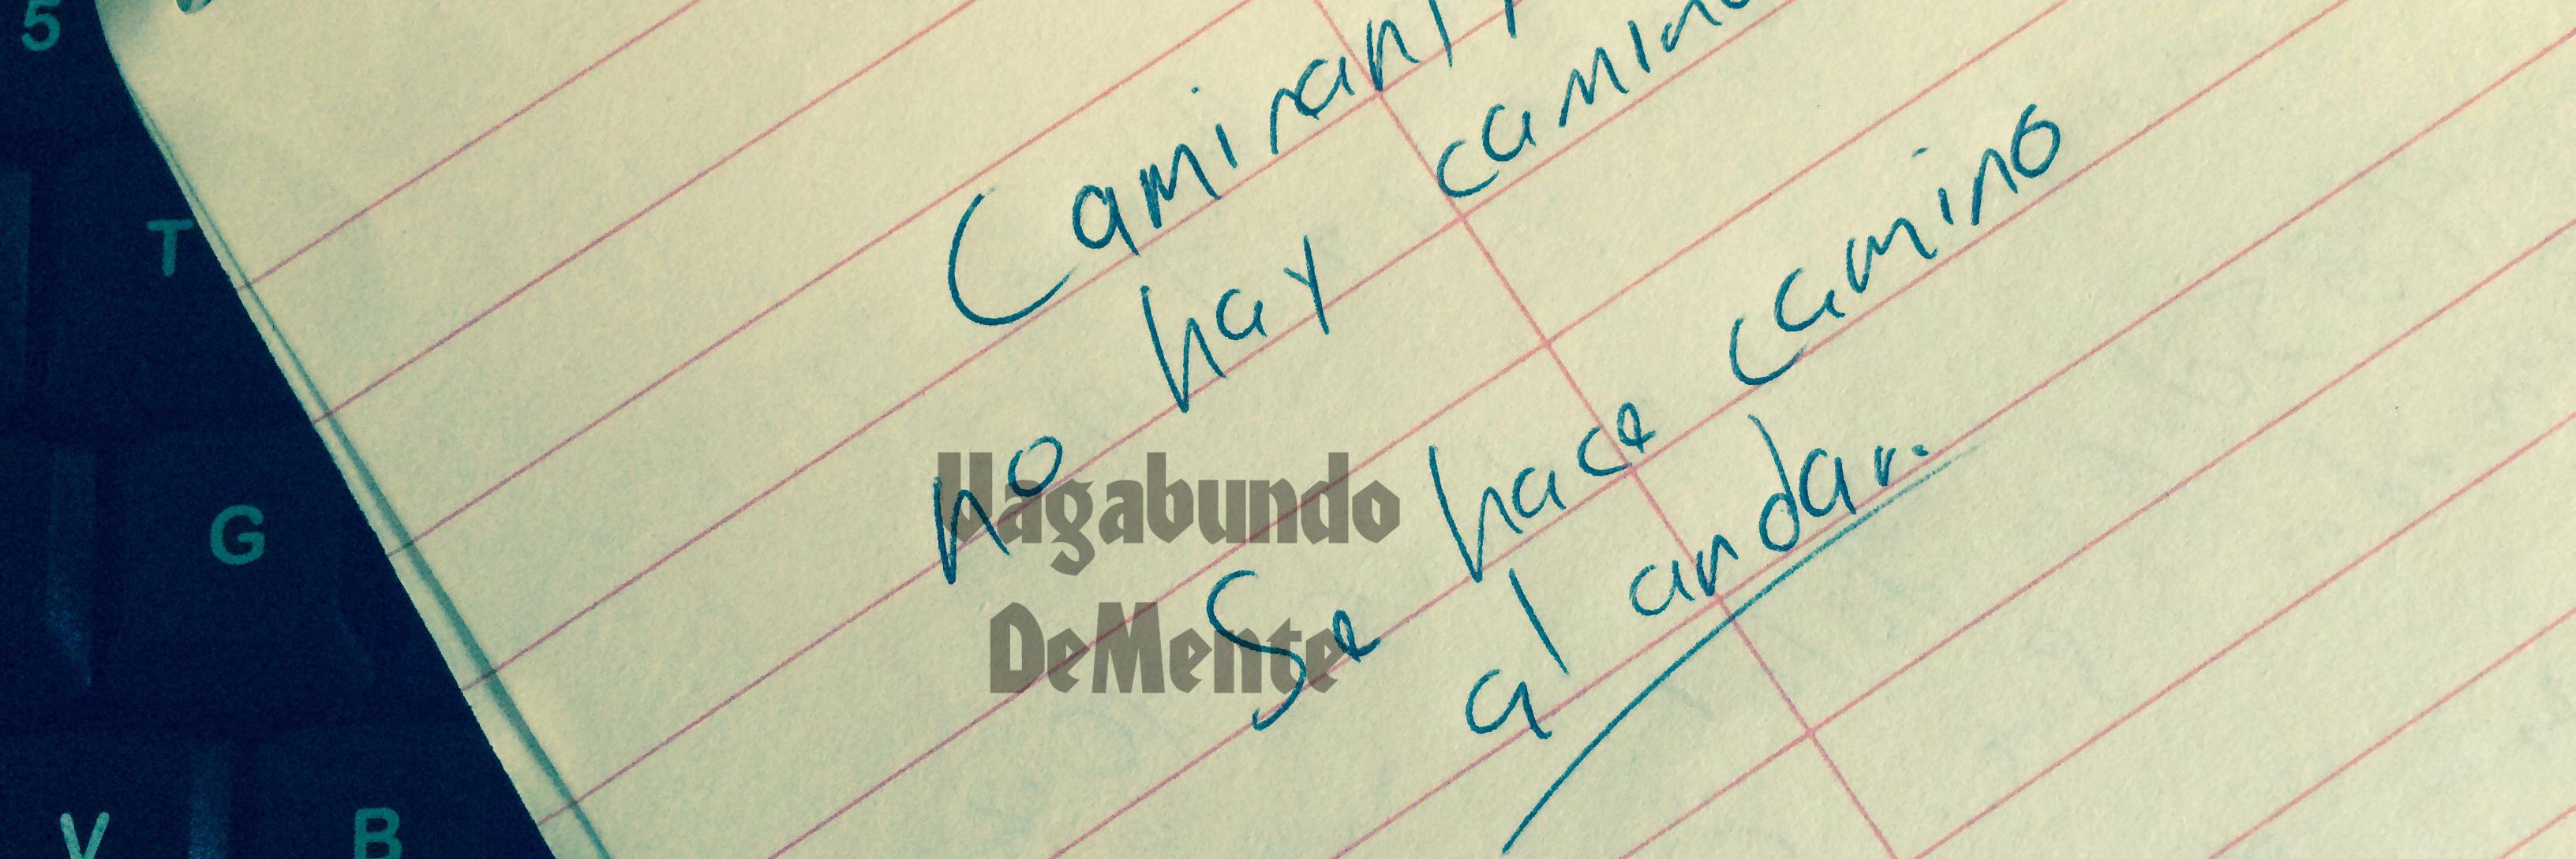 5
T
G
V
B
Caminant
no hay camino
Se hace camino
al andar.
Vagabundo
DeMente